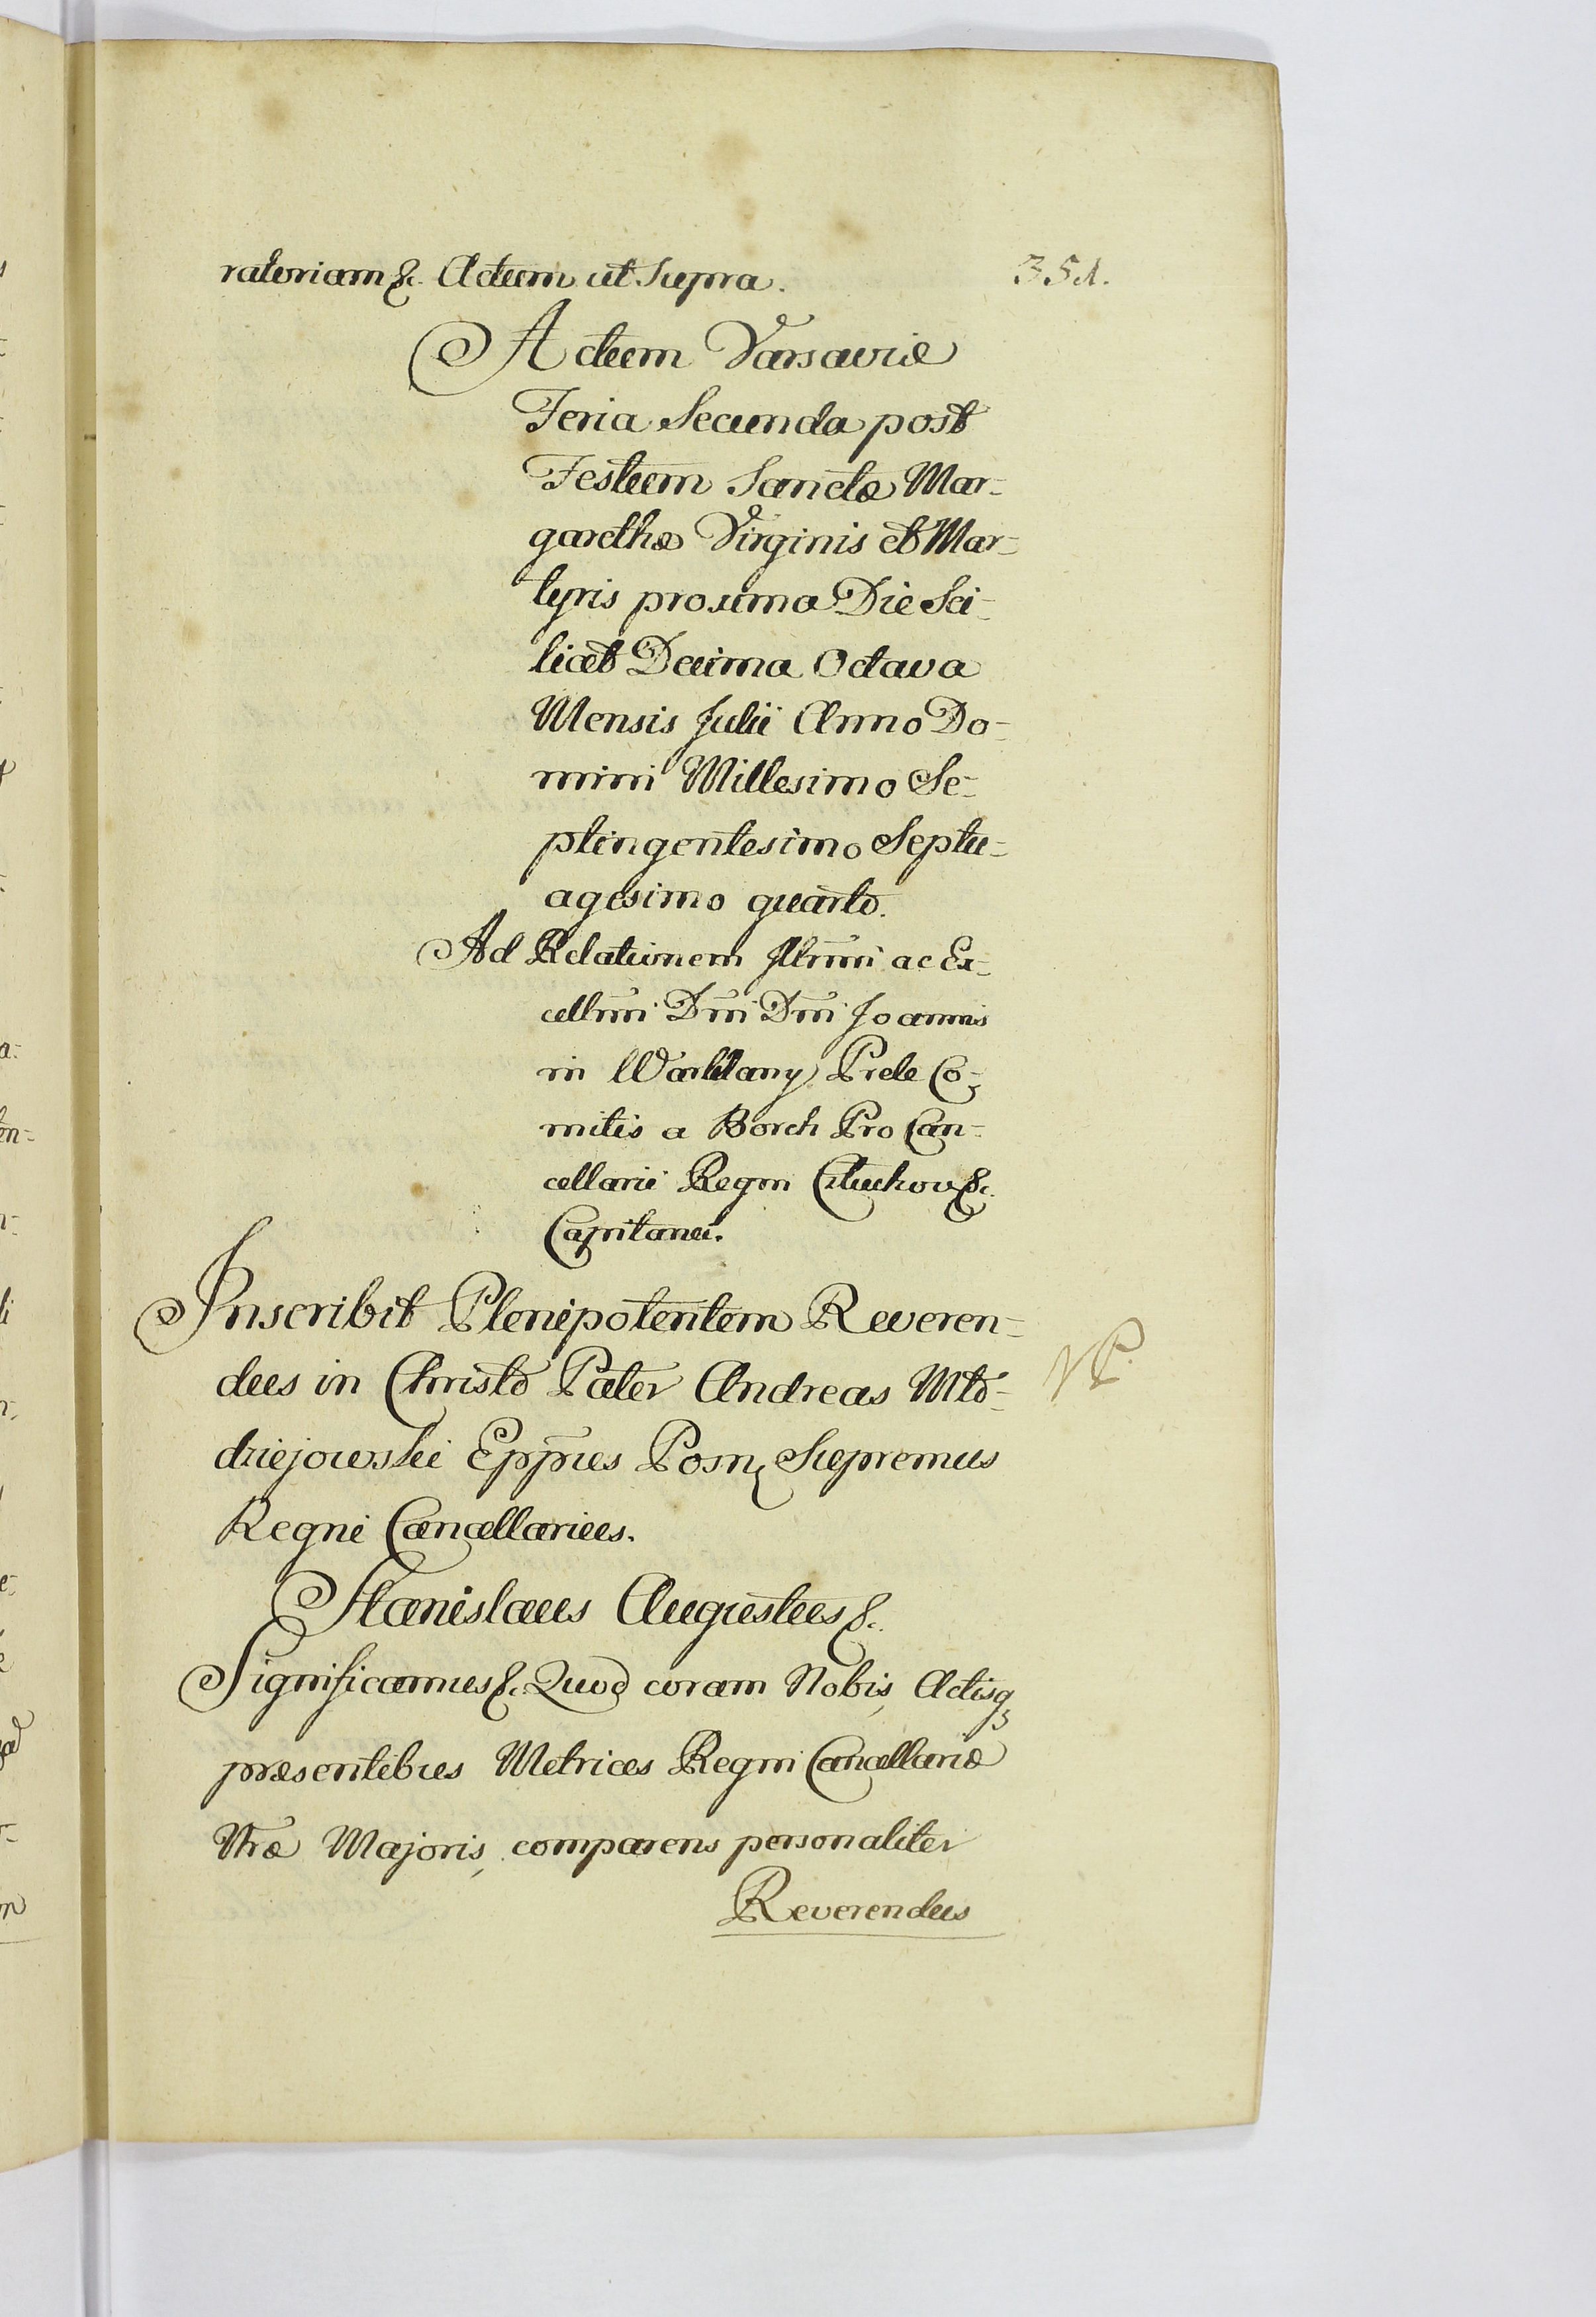 ratoriam &c. Actum ut Supra.
351.
Actum Varsaviæ
Feria Secunda post
Festum Sanctæ Mar-
garethæ Virginis et Mar-
tyris proxima Die Sci-
licet Decima Octava
Mensis Julii Anno Do-
mini Millesimo Se-
ptingentesimo Septu-
agesimo quarto.
Ad Relationem Illrmi ac Ex-
cellmi Dni Dni Joannis
in Warklany Prele Co-
mitis a Borch Pro Can-
cellarii Regni &c.
Capitanei.
Inscribit Plenipotentem Reveren-
dus in Christo Pater Andreas Mło-
dziejowski Eppus Posn, Supremus
Regni Cancellarius.
Stanislaus Augustus &c.
Significamus &c. Quod coram Nobis, Actisq,
præsentibus Metrices Regni Cancellariæ
Nræ Majoris, comparens personaliter
Reverendus